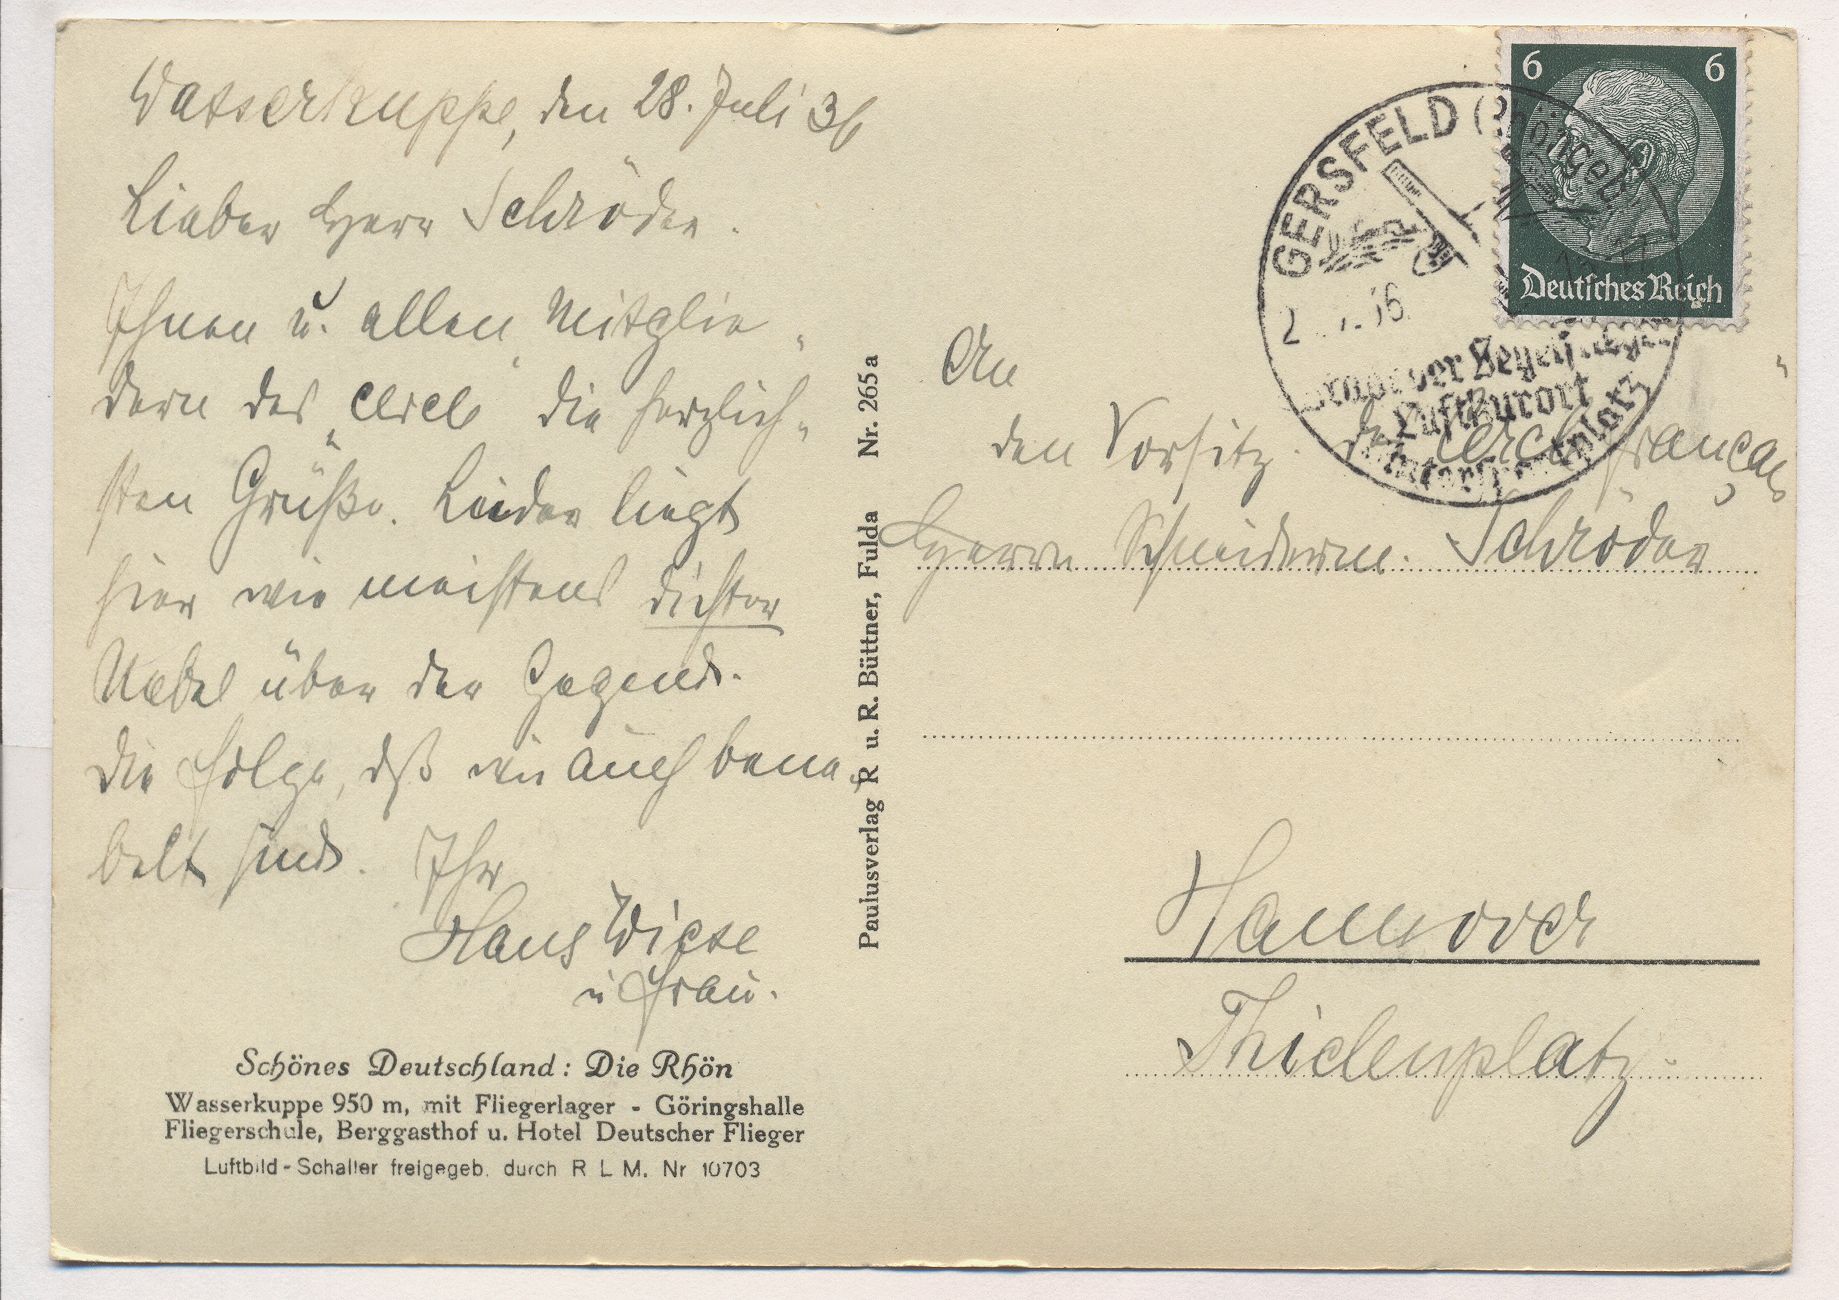 Wasserkuppe, den 28. Juli 36
Lieber Herr Schröder.
Ihnen u. allen Mitglie-
dern des „Cercle" die herzlich-
sten Grüße. Leider liegt
hier wie meistens dichter
Nebel über der Gegend.
Die Folge, dß wir auch bene-
belt sind. Ihr
Hans Wiese
u Frau.
Schönes Deutschland: Die Rhön
Wasserkuppe 950 m, mit Fliegerlager - Göringshalle
Fliegerschule, Berggasthof u. Hotel Deutscher Flieger
Luftbild-Schaller freigegeb. durch R L M. Nr 10703
Paulusverlag R u. R. Büttner, Fulda Nr. 265 a
6 6
Deutsches Reich
GERSFELD (Rhöngeb.)
36
der Segelflieger
Luftkurort
Wintersportplatz
An
den Vorsitz. des „Cercle français"
Herrn Schneiderm. Schröder
Hannover
Thielenplatz